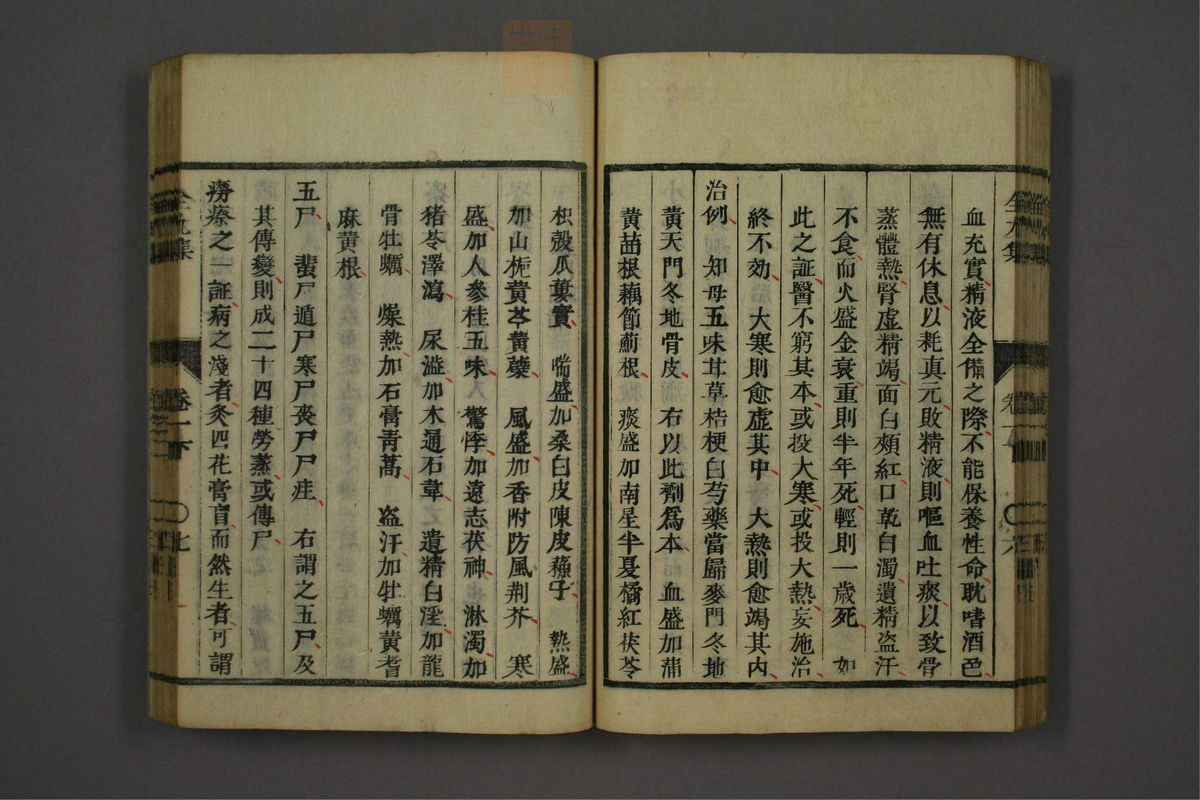 血充實精液全備之際不能保養性命耽嗜酒色
無有休息以耗真元敗精液則嘔血吐痰以致骨
蒸體熱腎虛精竭面白頰紅口乾白濁遺精盜汗
不食而火盛金衰重則半年死輕則一歲死 如
此之証醫不窮其本或投大寒或投大熱妄施治
終不効 大寒則愈虛其中 大熱則愈竭其内
治例 知母五味甘草桔梗白芍藥當歸麥門冬地
黃天門冬地骨皮 右以此劑爲本 血盛加蒲
黃茜根藕節薊根 痰盛加南星半夏橘紅茯苓
枳殼瓜蔞實 喘盛加桑白皮陳皮蘓子 熱盛
加山梔黃芩黃蘗 風盛加香附防風荊芥 寒
盛加人參桂五味 驚悸加遠志茯神 淋濁加
猪苓澤瀉 尿澁加木通石韋 遺精白淫加龍
骨牡蠣 燥熱加石膏靑蒿 盗汗加牡蠣黃耆
麻黃根
五尸 蜚尸遁尸寒尸丧尸尸疰 右謂之五尸及
其傳變則成二十四種勞蒸或傳尸
癆瘵之一証病之淺者灸四花膏肓而然生者可謂
全九集
卷一下
〇七
全九集
卷一下
〇六